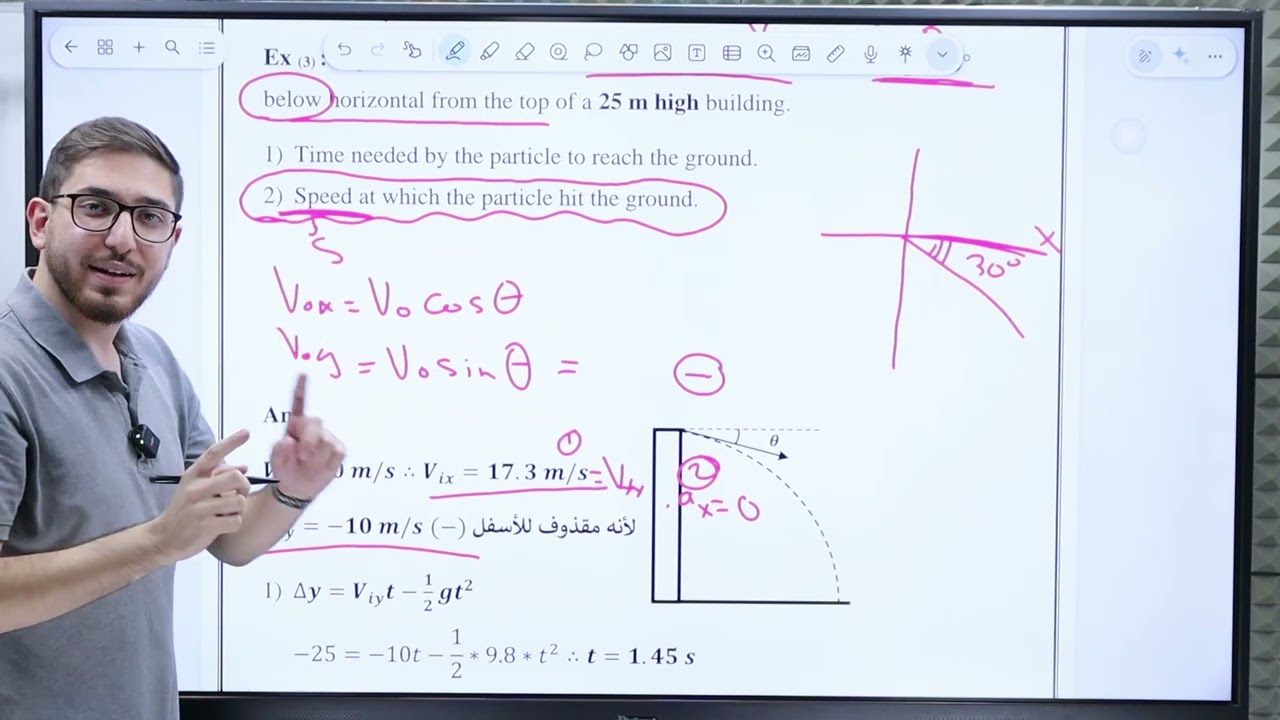 Ex (3) :
below horizontal from the top of a 25 m high building.
1) Time needed by the particle to reach the ground.
2) Speed at which the particle hit the ground.
S
X
30°
Vox = Vo cosθ
Voy = Vo sinθ =
−
θ
①
m/s ∴ Vix = 17.3 m/s = Vfx
②
ax = 0
= −10 m/s (−) لأنه مقذوف للأسفل
1) Δy = Viyt − 1/2 gt²
−25 = −10t − 1/2 * 9.8 * t² ∴ t = 1.45 s